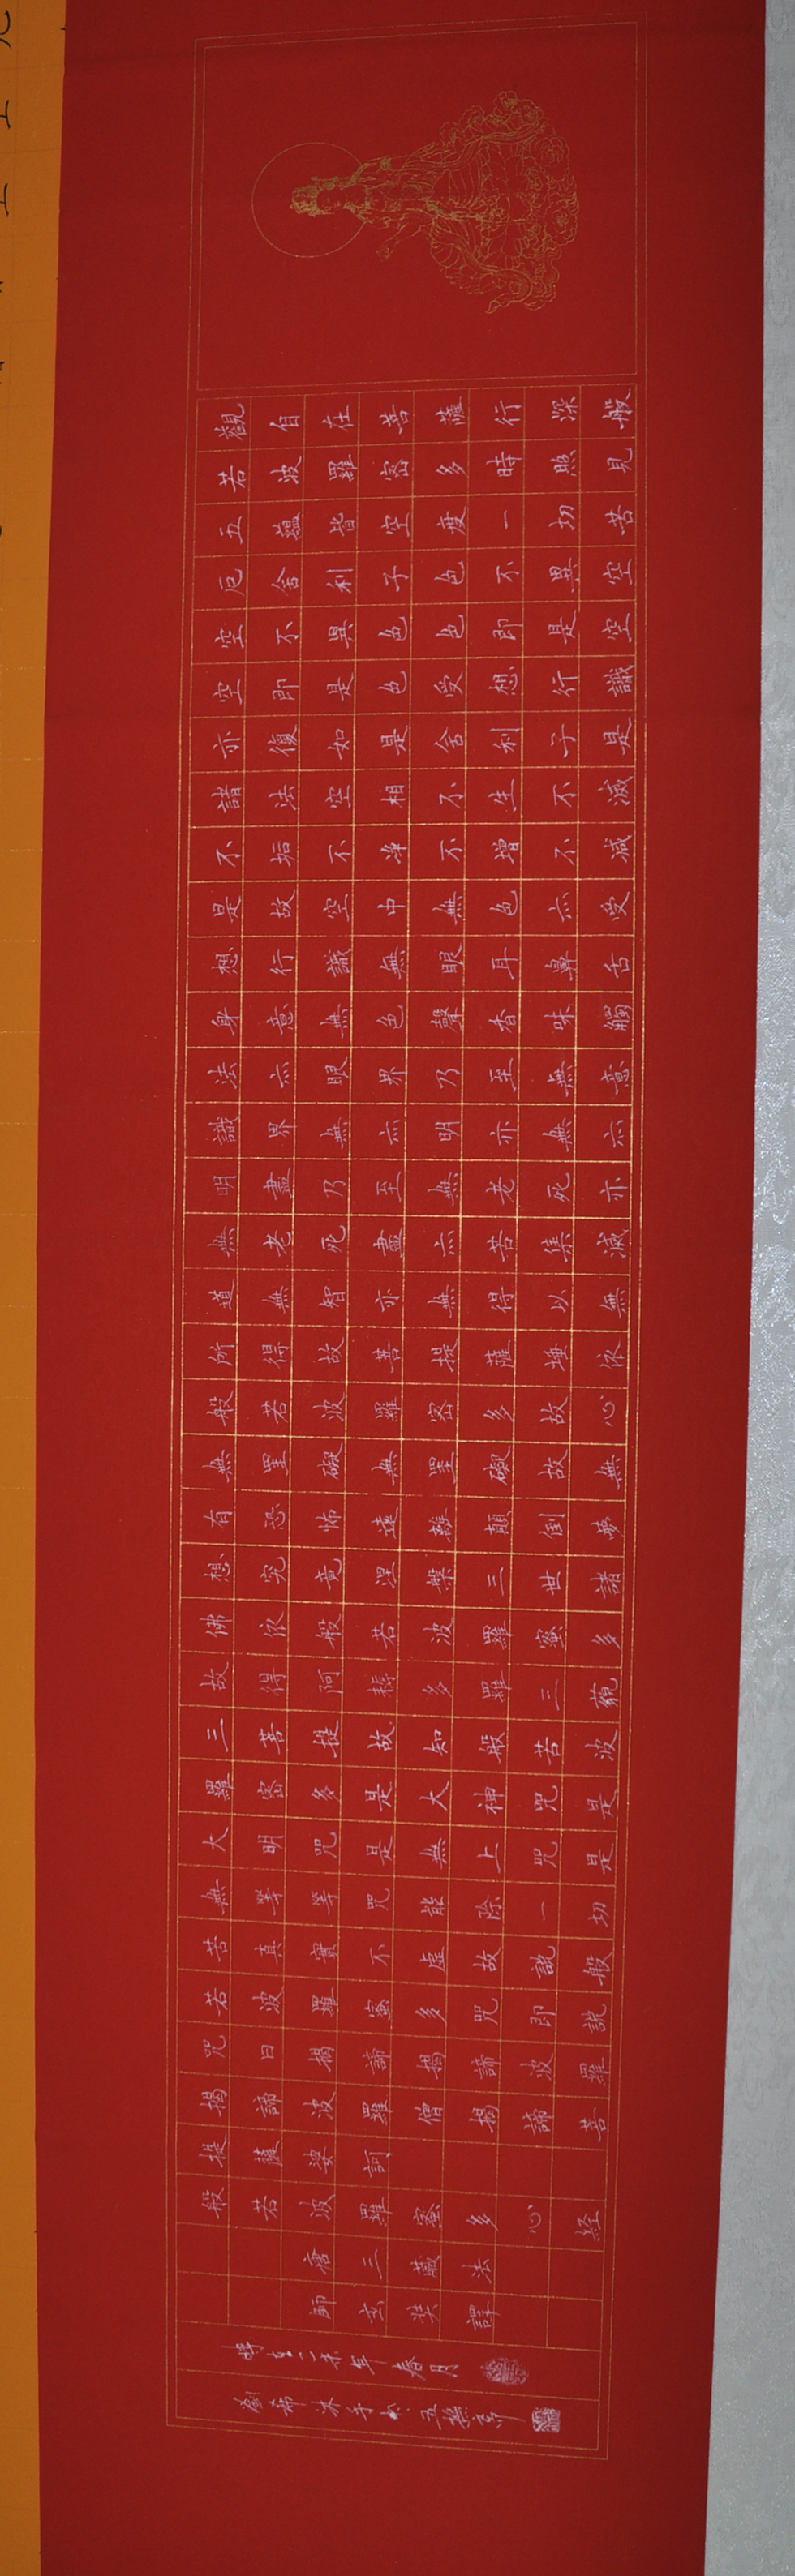 觀自在菩薩行深般
若波羅密多時照見
五蘊皆空度一切苦
厄舍利子色不異空
空不異色色即是空
空即是色受想行識
亦復如是舍利子是
諸法空相不生不滅
不垢不淨不增不減
是故空中無色无受
想行識無眼耳鼻舌
身意無色聲香味觸
法无眼界乃至無意
識界無无明亦無无
明盡乃至無老死亦
無老死盡无苦集滅
道無智亦無得以無
所得故菩提薩埵依
般若波羅密多故心
無罣礙無罣礙故無
有恐怖遠離顛倒夢
想究竟涅槃三世諸
佛依般若波羅蜜多
故得阿耨多羅三藐
三菩提故知般若波
羅密多是大神咒是
大明咒是無上咒是
無等等咒能除一切
苦真實不虛故說般
若波羅蜜多咒即說
咒曰揭諦揭諦波羅
揭諦波羅僧揭諦菩
提薩婆訶
般若波羅蜜多心經
唐三藏法
師玄奘譯
時在乙未年春月
劉希沐手